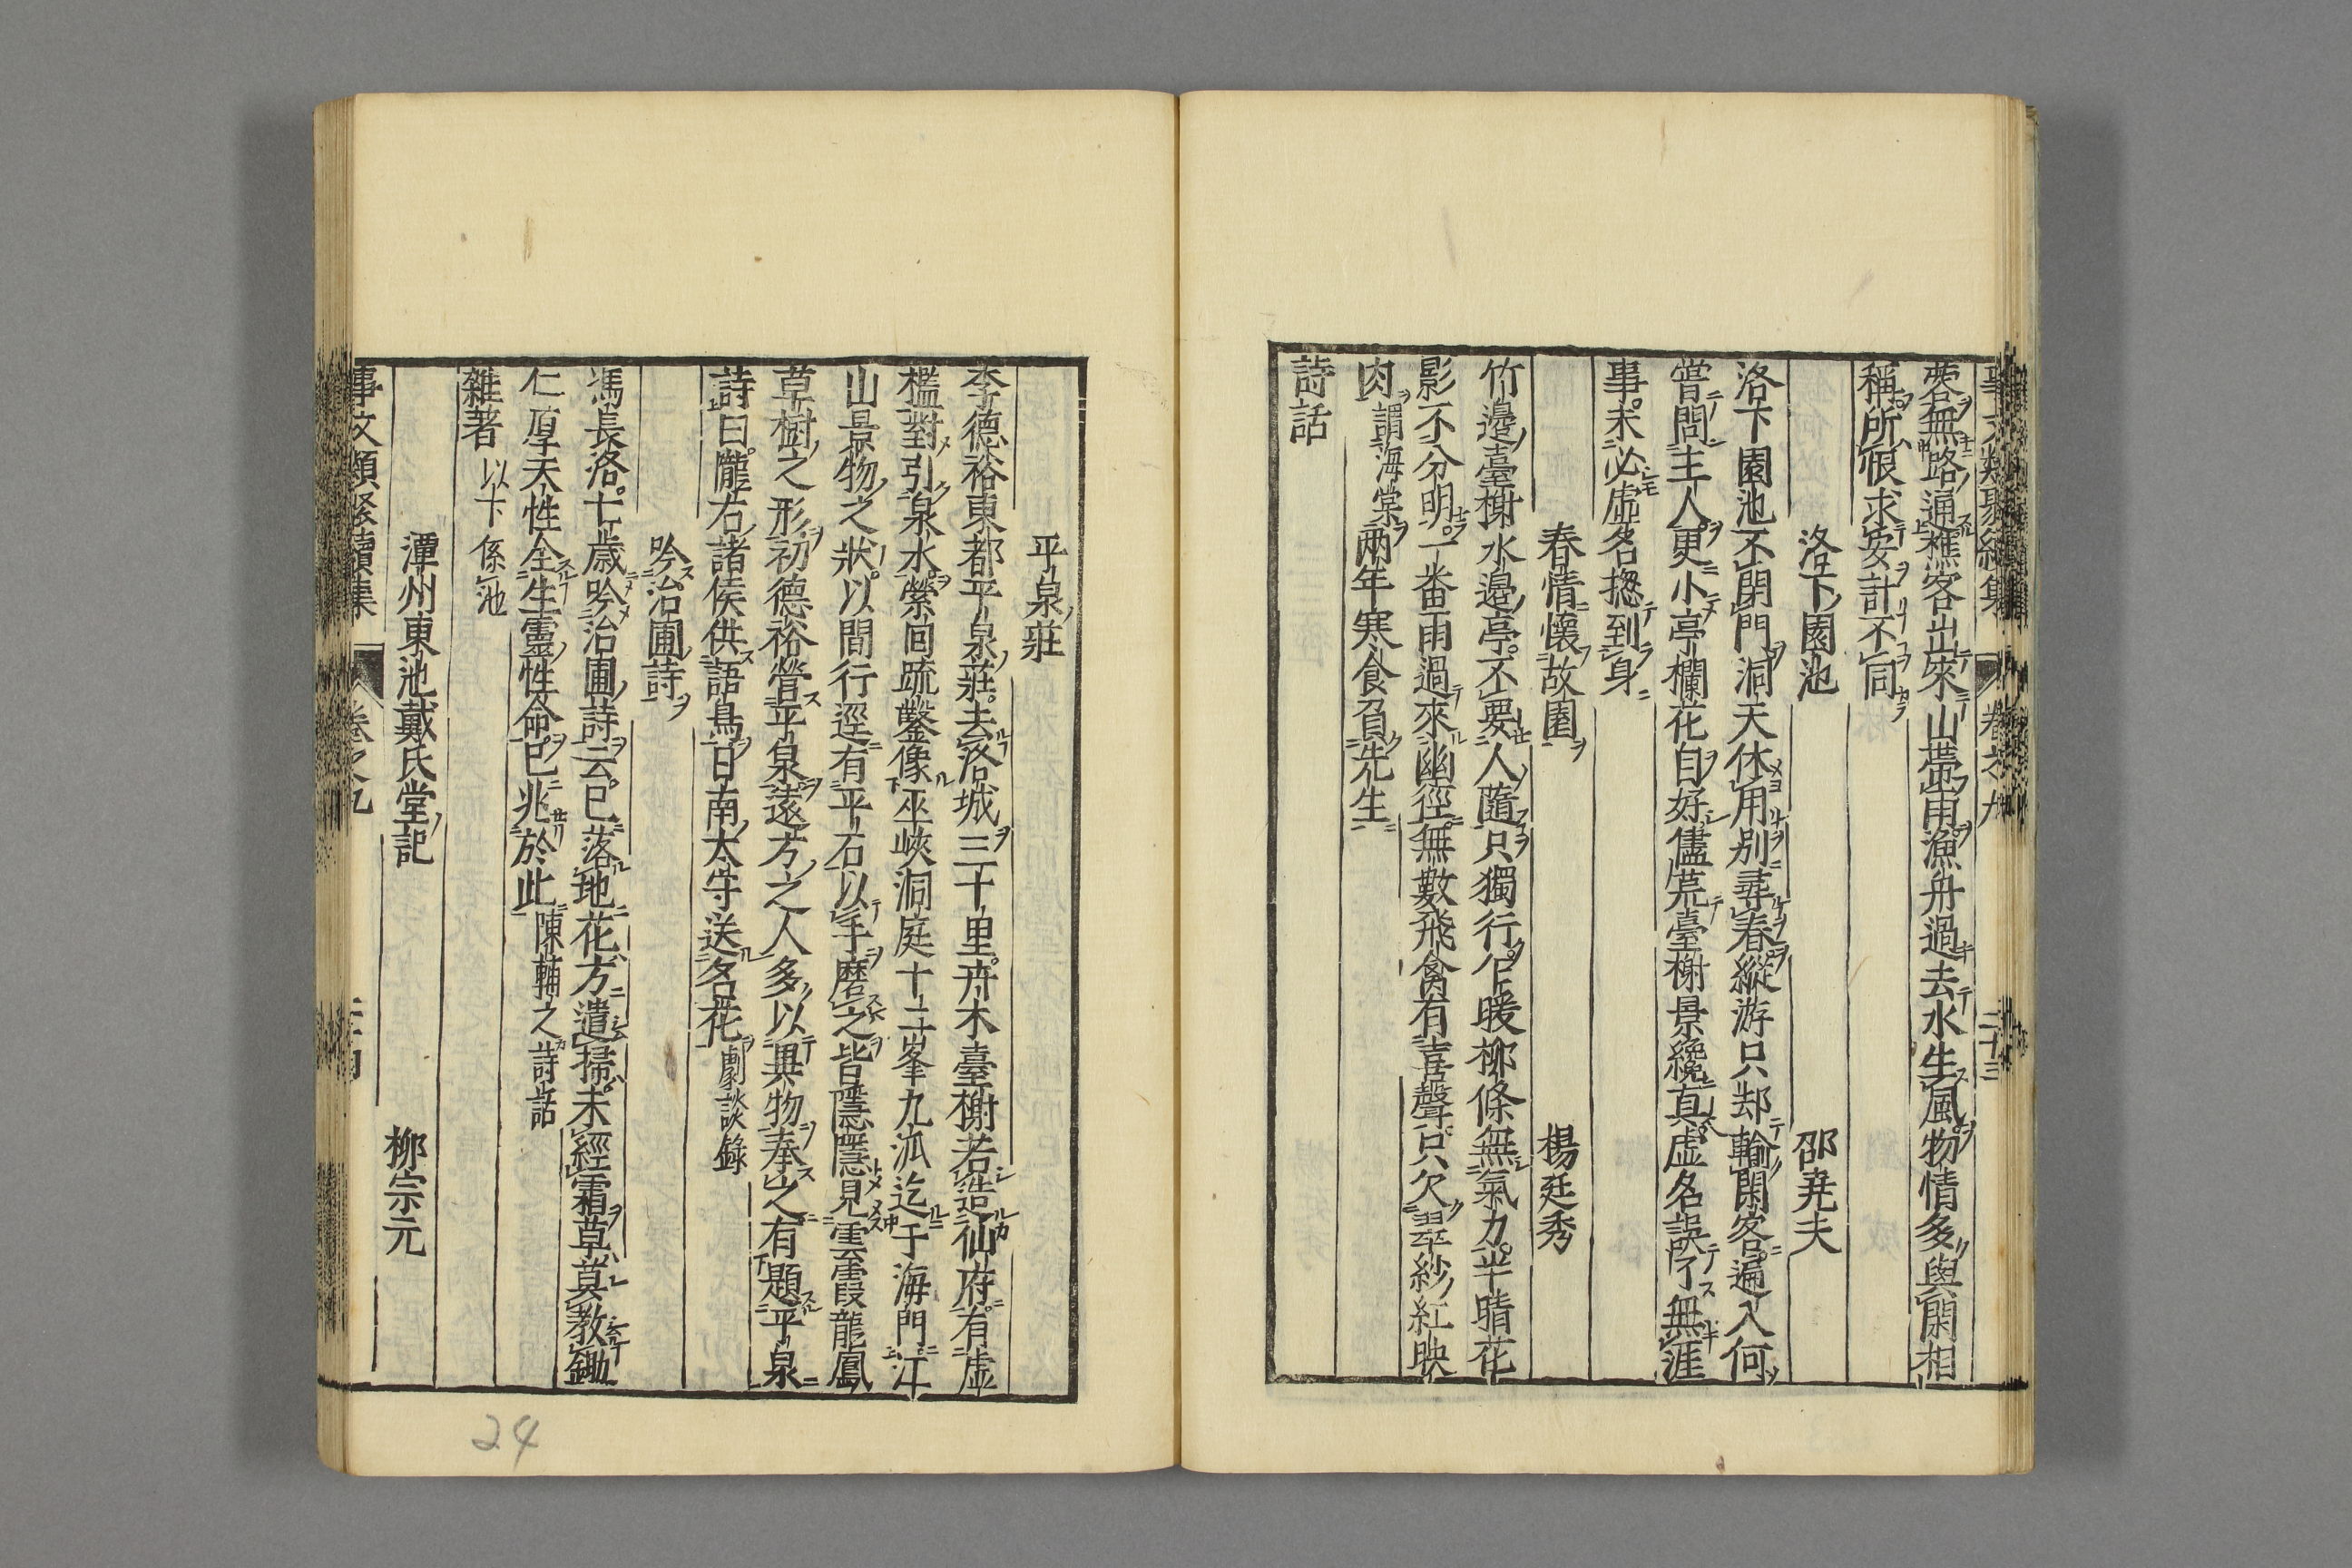 事文類聚續集 卷之九 二十三
旁無路通樵客出來山帶雨漁舟過去水生風物情多與閑相
稱所恨求安計不同
洛下園池 邵堯夫
洛下園池不閉門洞天休用別尋春縱游只却輸閑客遍入何
嘗問主人更小亭欄花自好儘荒臺榭景纔真虛名誤了無涯
事未必虛名揔到身
春情懷故園 楊廷秀
竹邊臺榭水邊亭不要人隨只獨行乍暖柳條無氣力半晴花
影不分明一番雨過來幽徑無數飛禽有喜聲只欠翠紗紅映
肉謂海棠兩年寒食負先生
詩話
平泉莊
李德裕東都平泉莊去洛城三十里卉木臺榭若造仙府有虛
檻對引泉水縈回疏鑿像巫峽洞庭十二峯九派迄于海門江
山景物之狀以間行逕有平石以手磨之皆隱隱見雲霞龍鳳
草樹之形初德裕營平泉遠方之人多以異物奉之有題平泉
詩曰隴右諸侯供語鳥日南太守送名花劇談錄
吟治圃詩
馮長洛七歲吟治圃詩云已落地花方遣掃未經霜草莫教鋤
仁厚天性全生靈性命已兆於此陳輔之詩話
雜著 以下係池
潭州東池戴氏堂記 柳宗元
事文類聚續集 卷之九